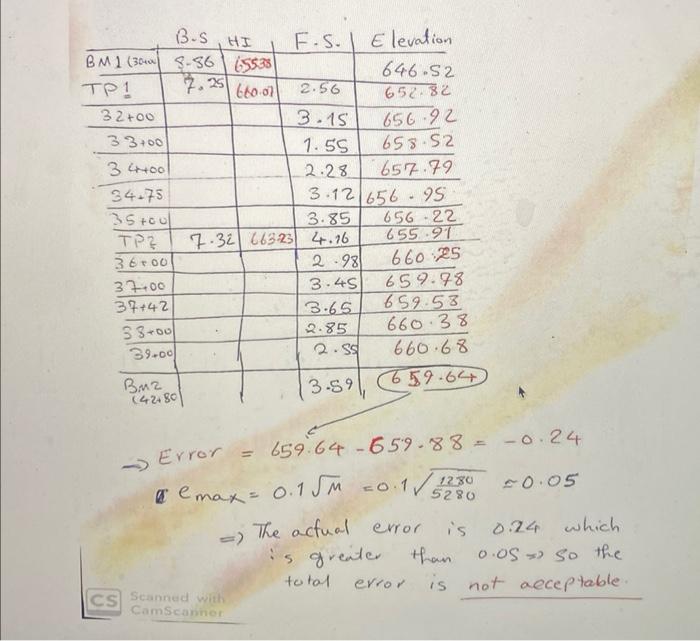 B.S HI F.S. Elevation
BM1 (30+00) 8.86 655.38 646.52
TP1 7.25 660.07 2.56 652.82
32+00 3.15 656.92
33+00 1.55 658.52
34+00 2.28 657.79
34.75 3.12 656.95
35+00 3.85 656.22
TP2 7.32 663.23 4.16 655.91
36+00 2.98 660.25
37+00 3.45 659.78
37+42 3.65 659.58
38+00 2.85 660.38
39+00 2.55 660.68
BM2 3.59 659.64
(42+80
⇒ Error = 659.64 - 659.88 = -0.24
emax = 0.1√M = 0.1√1280/5280 ≈ 0.05
⇒ The actual error is 0.24 which
is greater than 0.05 ⇒ so the
total error is not acceptable.
CS Scanned with
CamScanner